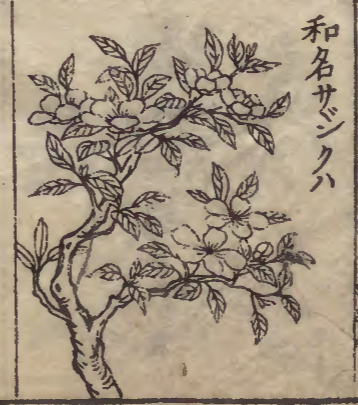 和名サヾンクハ